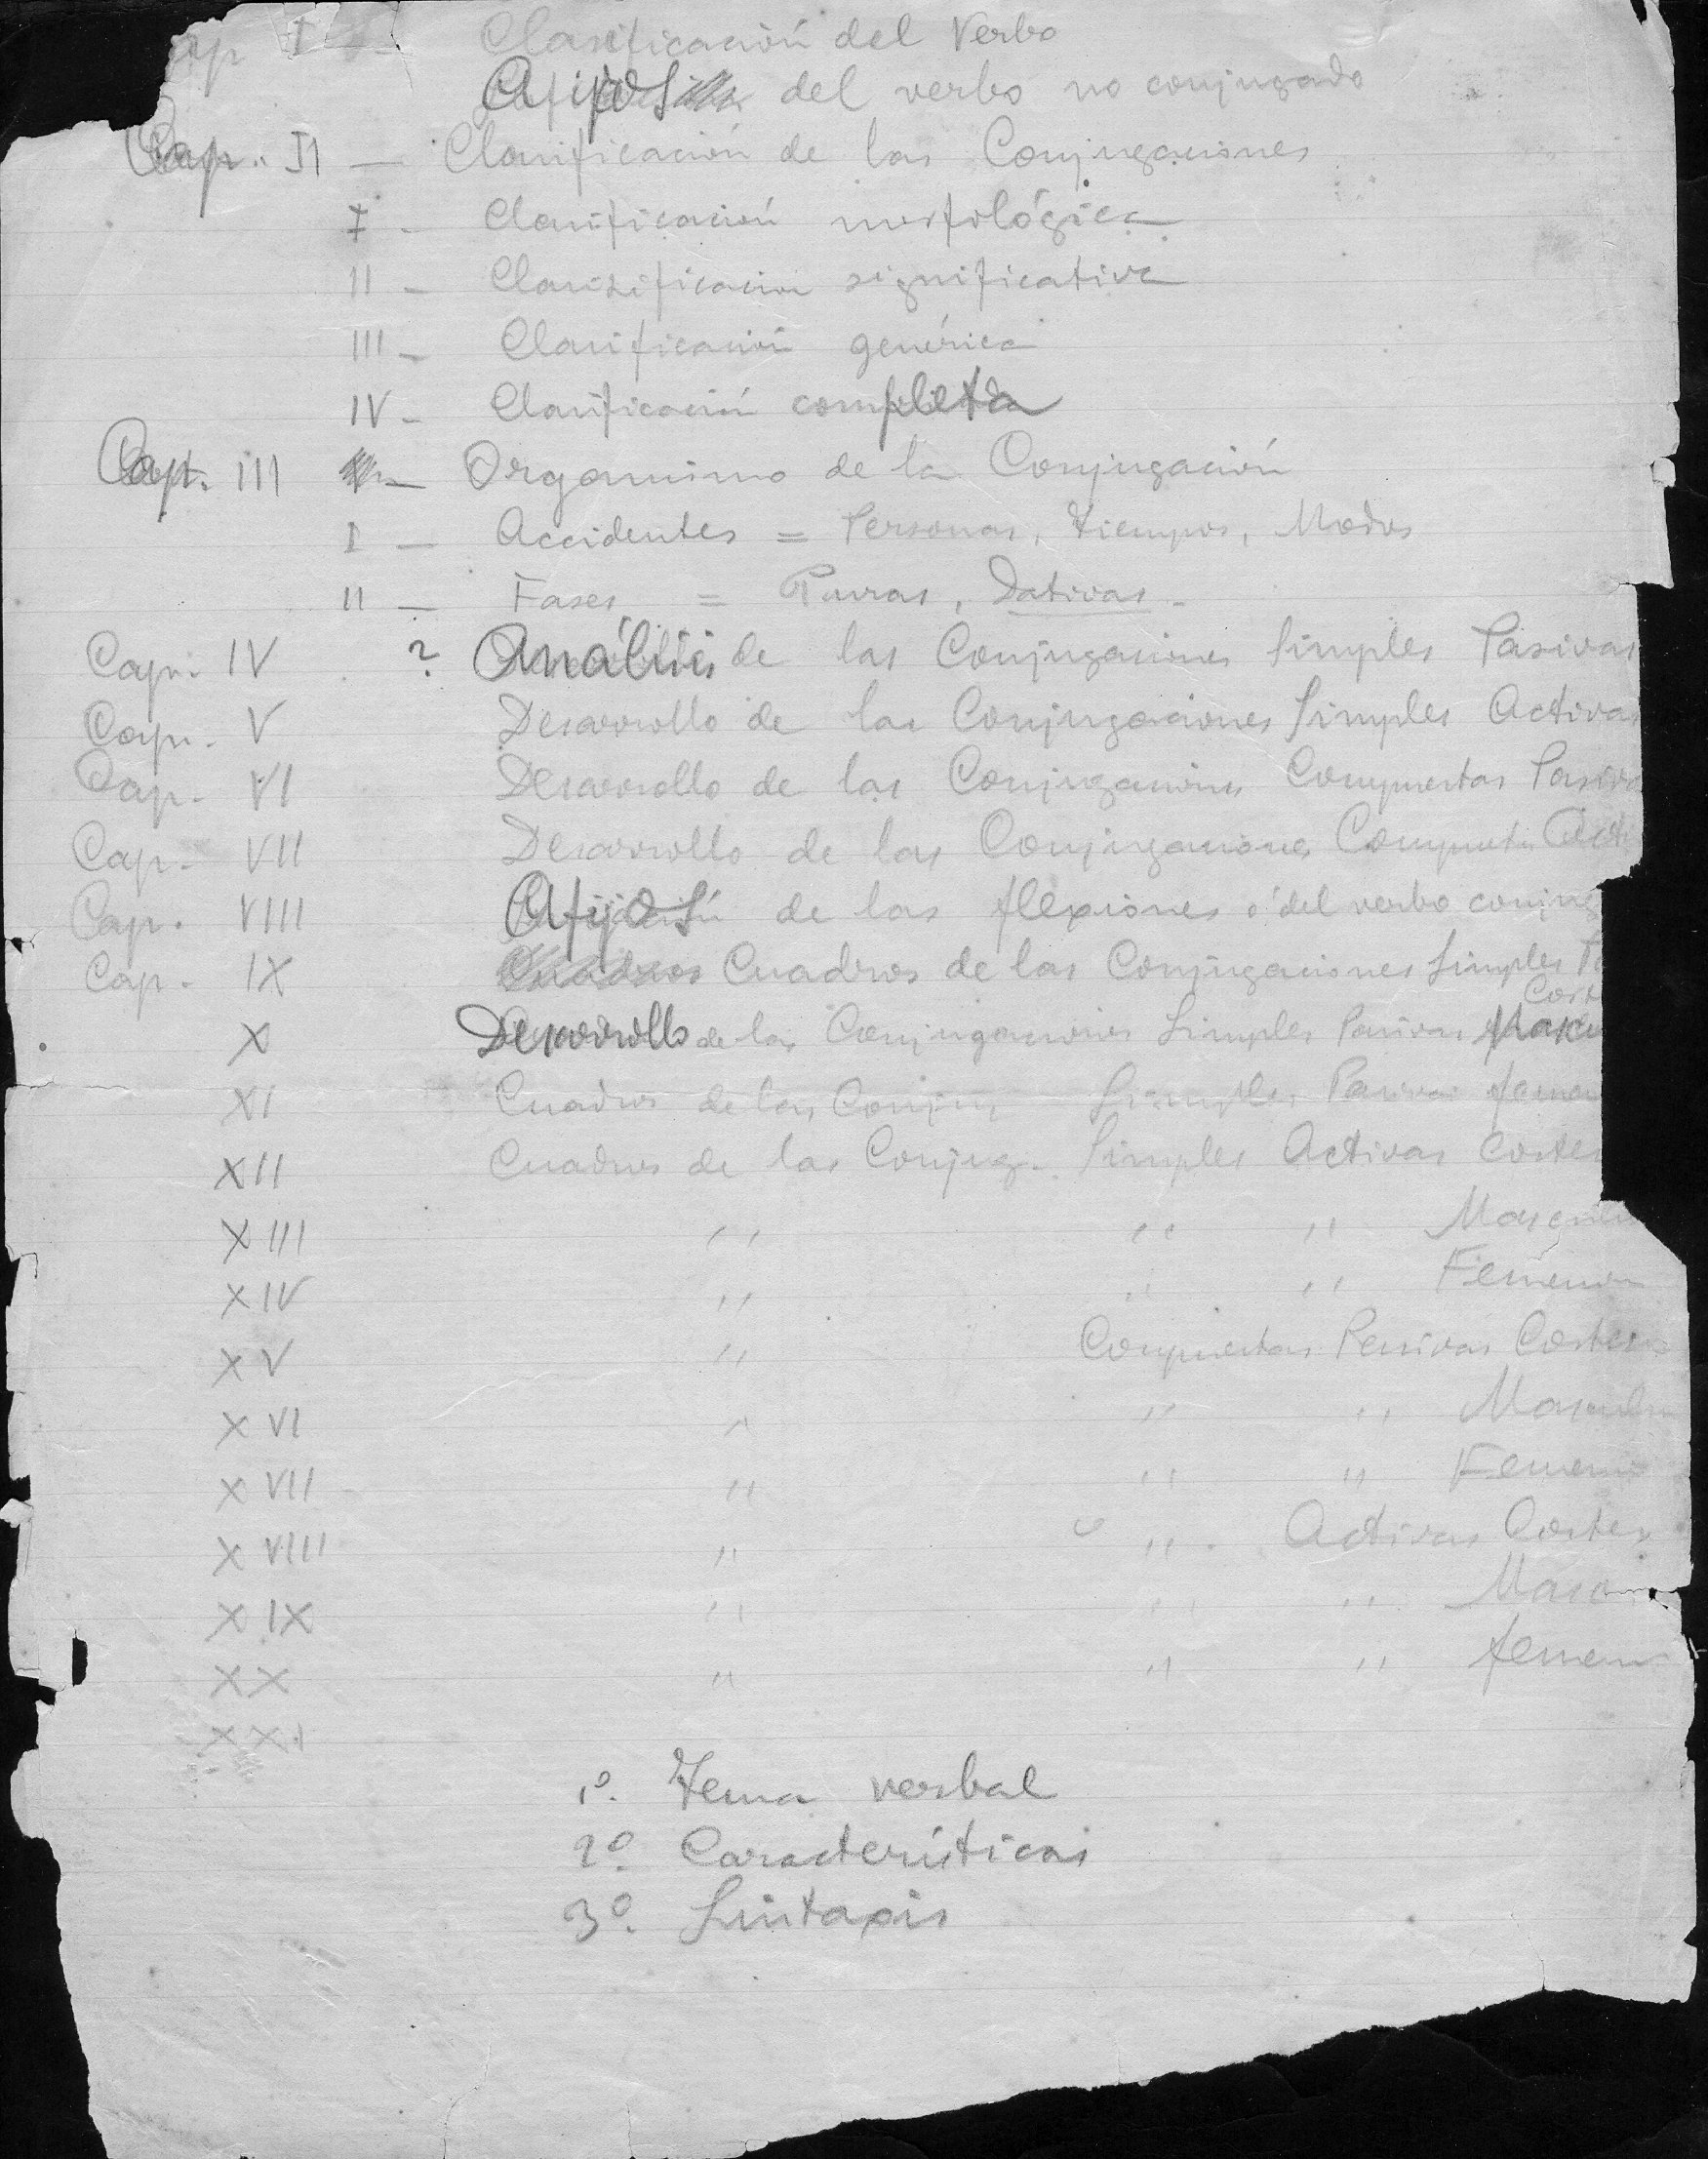 Cap I — Clasificación del Verbo
Afijos del verbo no conjugado
Cap. II — Clasificación de las Conjugaciones
I - Clasificación morfológica
II - Clasificacion significativa
III - Clasificación genérica
IV - Clasificación completa
Capt. III — Organismo de la Conjugación
I — Accidentes = Personas, Tiempos, Modos
II — Fases = Puras, Dativas -
Cap. IV ? Análisis de las Conjugaciones Simples Pasivas
Cap. V Desarrollo de las Conjugaciones Simples Activas
Cap. VI Desarrollo de las Conjugaciones Compuestas Pasiva
Cap. VII Desarrollo de las Conjugaciones Compuestas Acti
Cap. VIII Afijos de las flexiones ó del verbo conjug
Cap. IX Cuadros Cuadros de las Conjugaciones Simples Pa
Cort
X Desarrollo de las Conjugaciones Simples Pasivas Mascu
XI Cuadros de las Conjug Simples Pasivas femen
XII Cuadros de las Conjug. Simples Activas Cortes
XIII " " " Masculin
XIV " " " Femenin
XV " Compuestas Pasivas Cortes
XVI " " " Masculin
XVII " " " Femeni
XVIII " " . Activas Cortes
XIX " " " Mascu
XX " " " femen
XXI
1º. Tema verbal
2º. Características
3º. Sintaxis